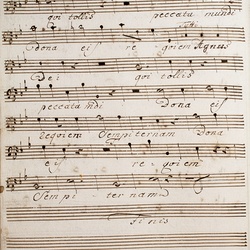 qui tollis peccata mundi
dona eis re quiem Agnus
Dei qui tollis
peccata mdi Dona eis
requiem Sempiternam Dona
eis re quiem
Sempi ternam
Finis